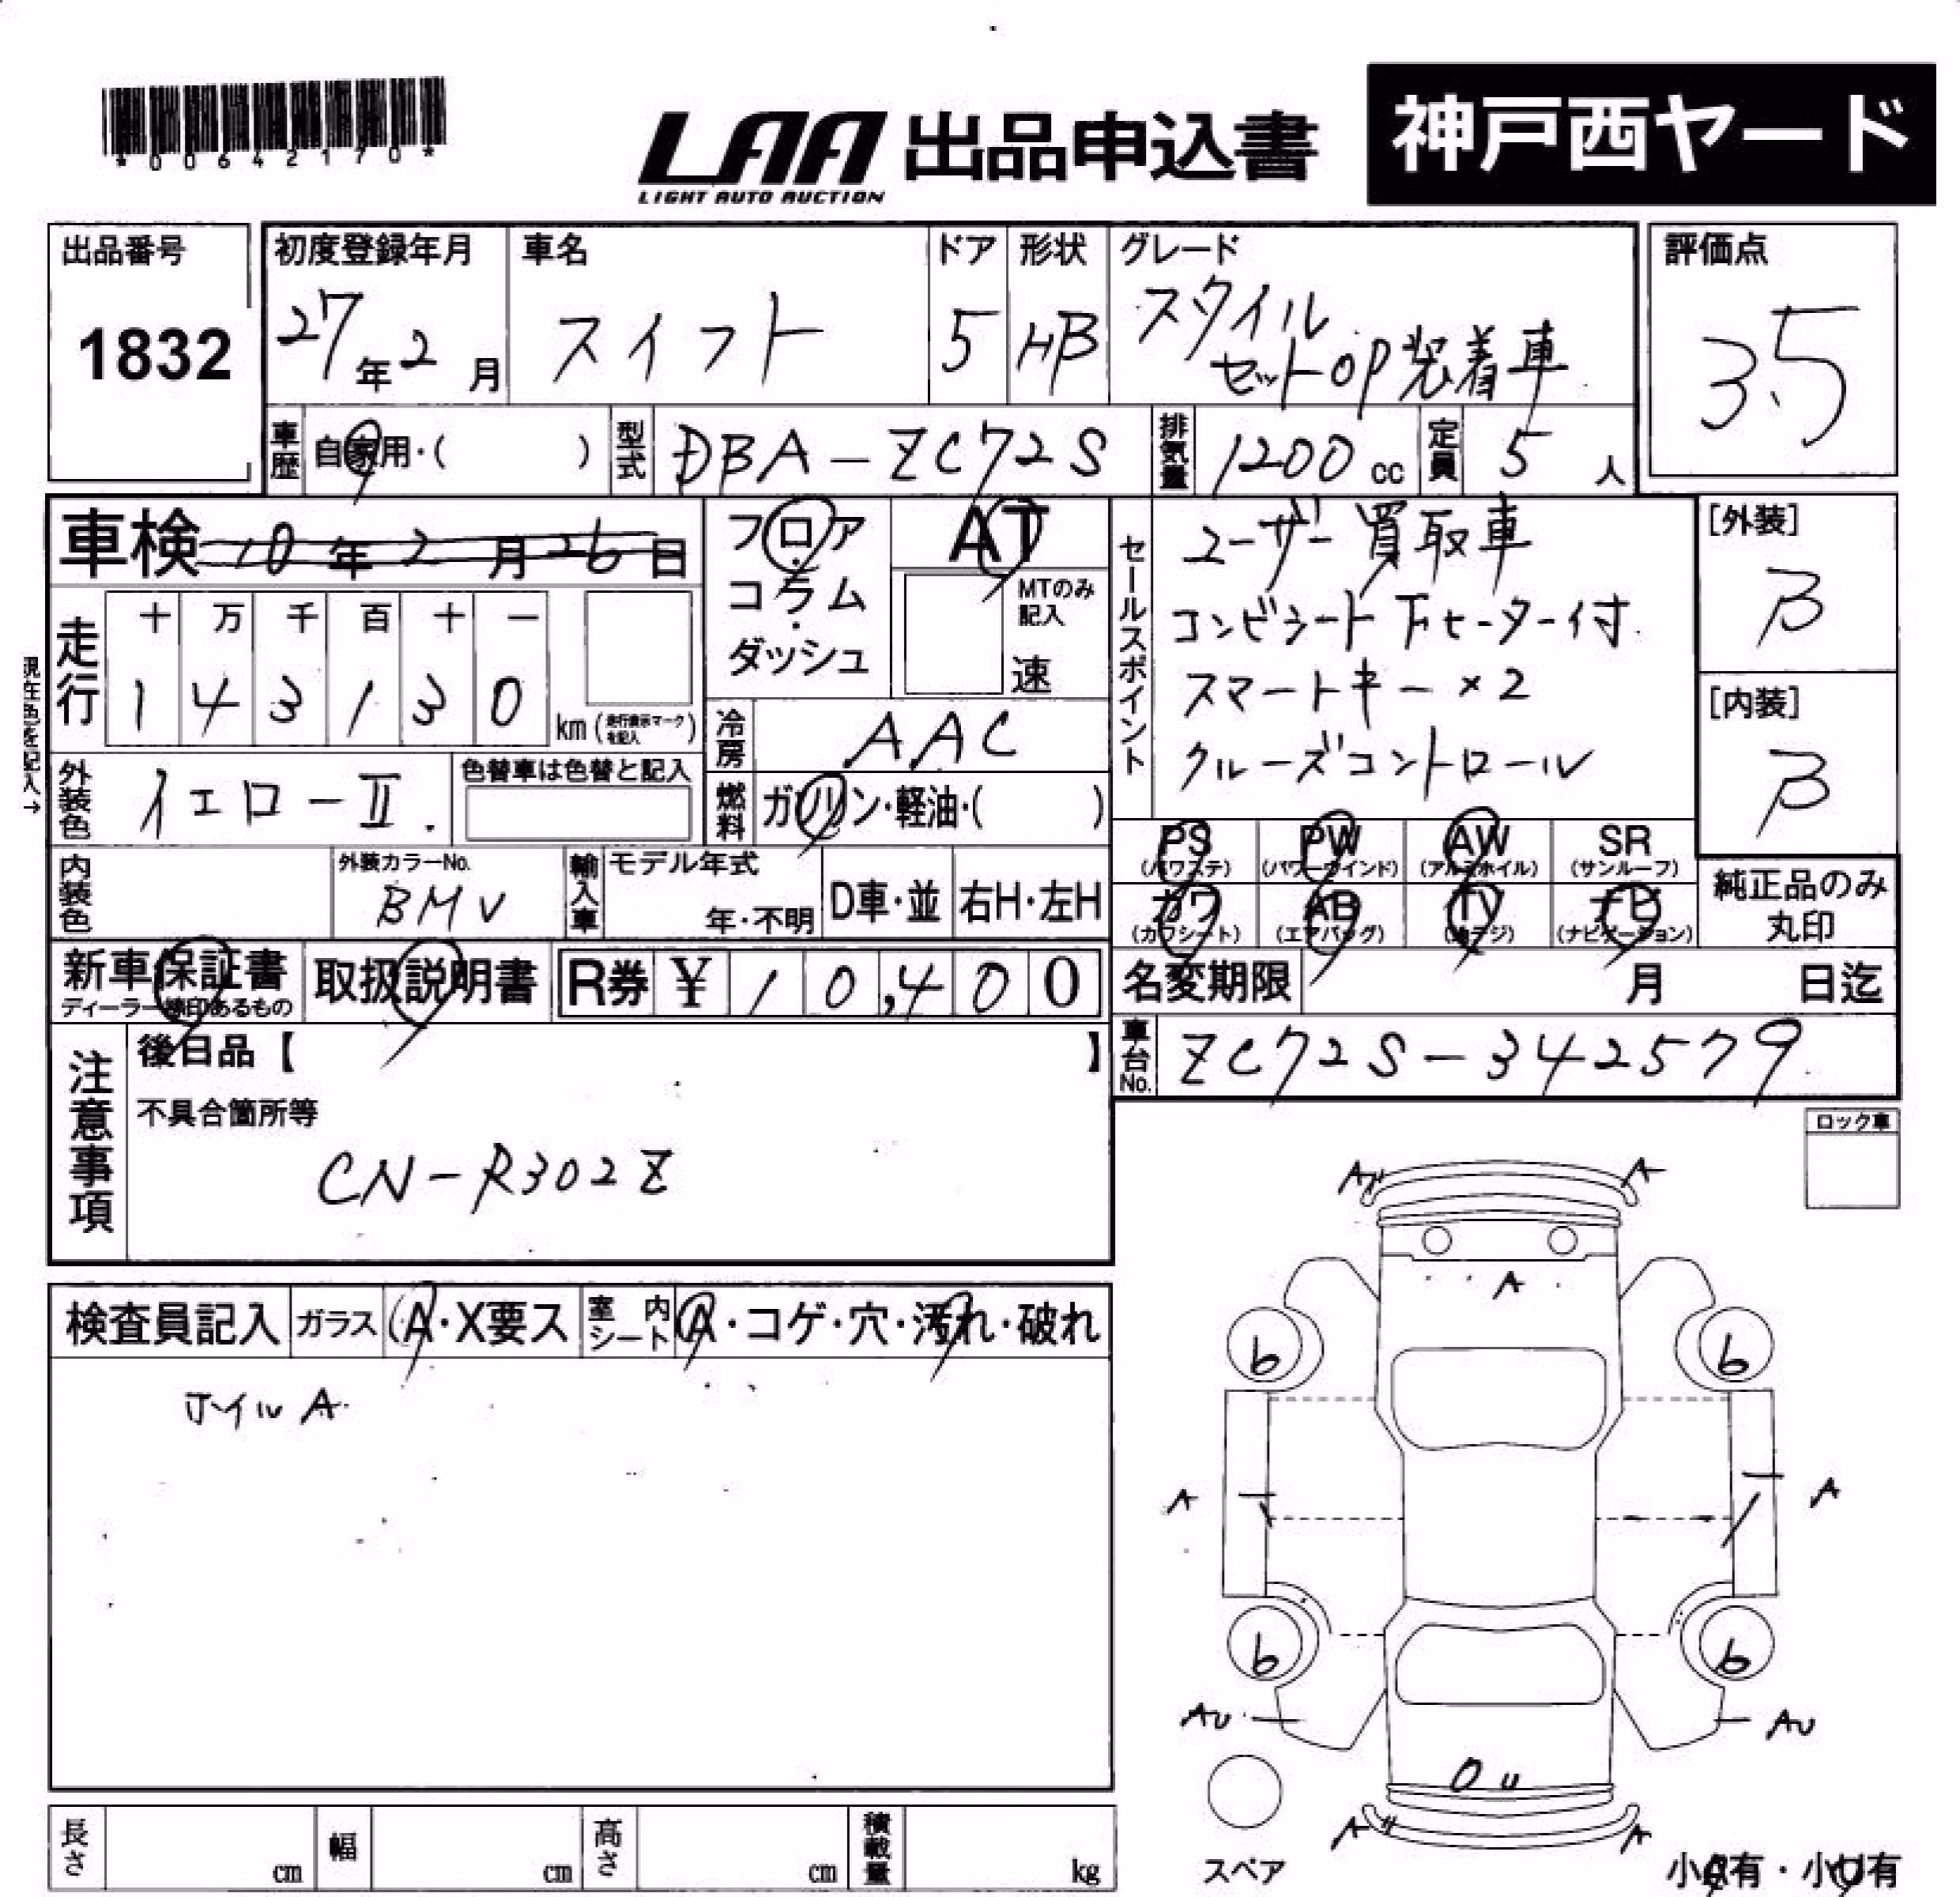 *00642170*
LAA 出品申込書
LIGHT AUTO AUCTION
神戸西ヤード
出品番号
1832
初度登録年月
27年2月
車名
スイフト
ドア
5
形状
HB
グレード
スタイル
セットOP装着車
評価点
3.5
車歴 自家用・( )
型式 DBA-ZC72S
排気量 1200cc
定員 5人
車検 10年2月26日
フロア・コラム・ダッシュ
AT
MTのみ記入
速
走行
十 万 千 百 十 一
1 4 3 1 3 0
km(走行表示マークを記入)
現在色を記入→
冷房 AAC
燃料 ガソリン・軽油・( )
外装色 イエローⅡ.
色替車は色替と記入
内装色
外装カラーNo.
BMV
輸入車
モデル年式
年・不明
D車・並
右H・左H
セールスポイント
ユーザー買取車
コンビシート 下ヒーター付
スマートキー×2
クルーズコントロール
[外装]
B
[内装]
B
PS (パワステ)
PW (パワーウインド)
AW (アルミホイル)
SR (サンルーフ)
カワ (カワシート)
AB (エアバッグ)
TV (地デジ)
ナビ (ナビゲーション)
純正品のみ
丸印
新車保証書
ディーラー捺印あるもの
取扱説明書
R券 ¥10,400
名変期限 月 日迄
車台No. ZC72S-342579
注意事項
後日品【 】
不具合箇所等
CN-R302Z
ロック車
検査員記入
ガラス A・X要ス
室内シート A・コゲ・穴・汚れ・破れ
ホイルA
A A
A
6 6
A A
6 6
AU AU
0 U
A A
スペア
小A有・小U有
長さ cm
幅 cm
高さ cm
積載量 kg